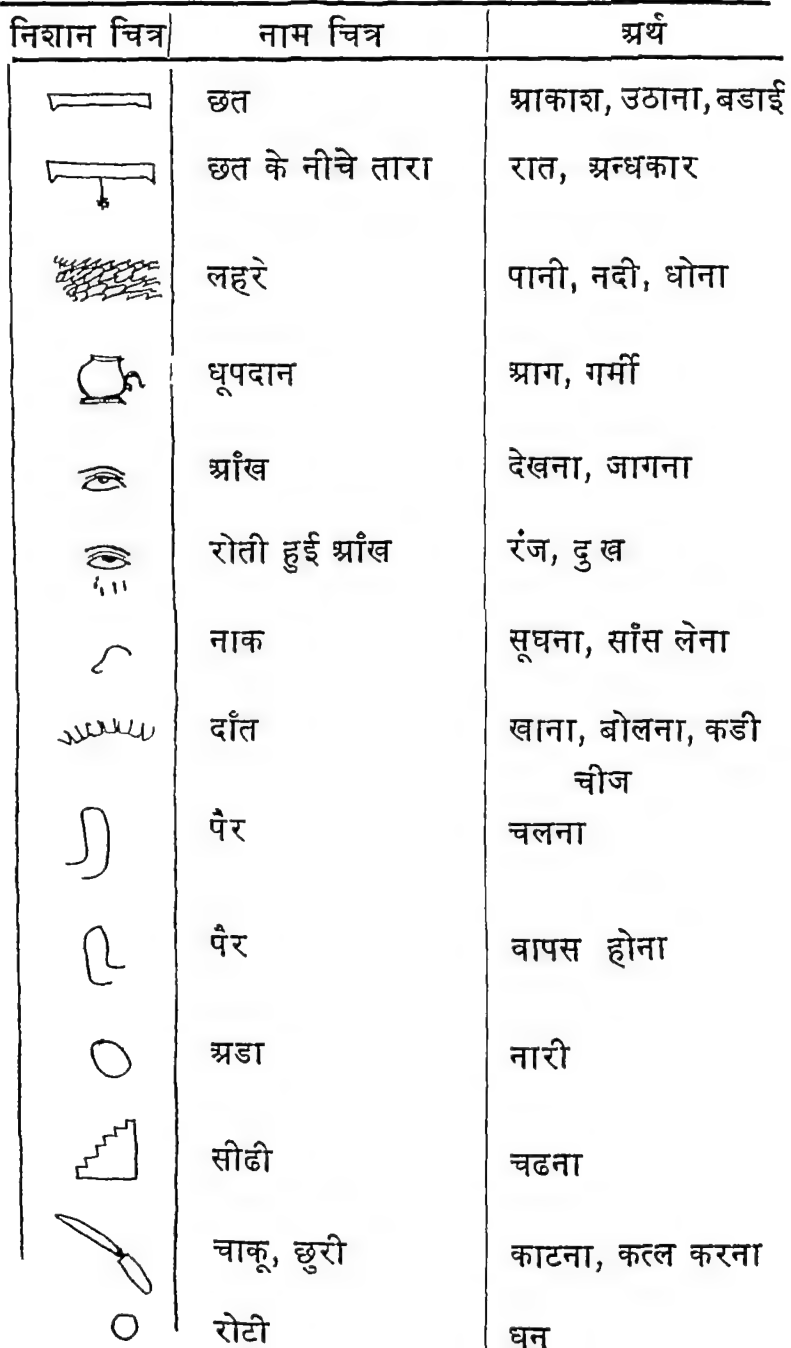 निशान चित्र नाम चित्र अर्थ
छत आकाश, उठाना, बडाई
छत के नीचे तारा रात, अन्धकार
लहरे पानी, नदी, धोना
धूपदान आग, गर्मी
आँख देखना, जागना
रोती हुई आँख रंज, दु ख
नाक सूघना, साँस लेना
दाँत खाना, बोलना, कडी
चीज
पैर चलना
पैर वापस होना
अडा नारी
सीढी चढना
चाकू, छुरी काटना, कत्ल करना
रोटी धन